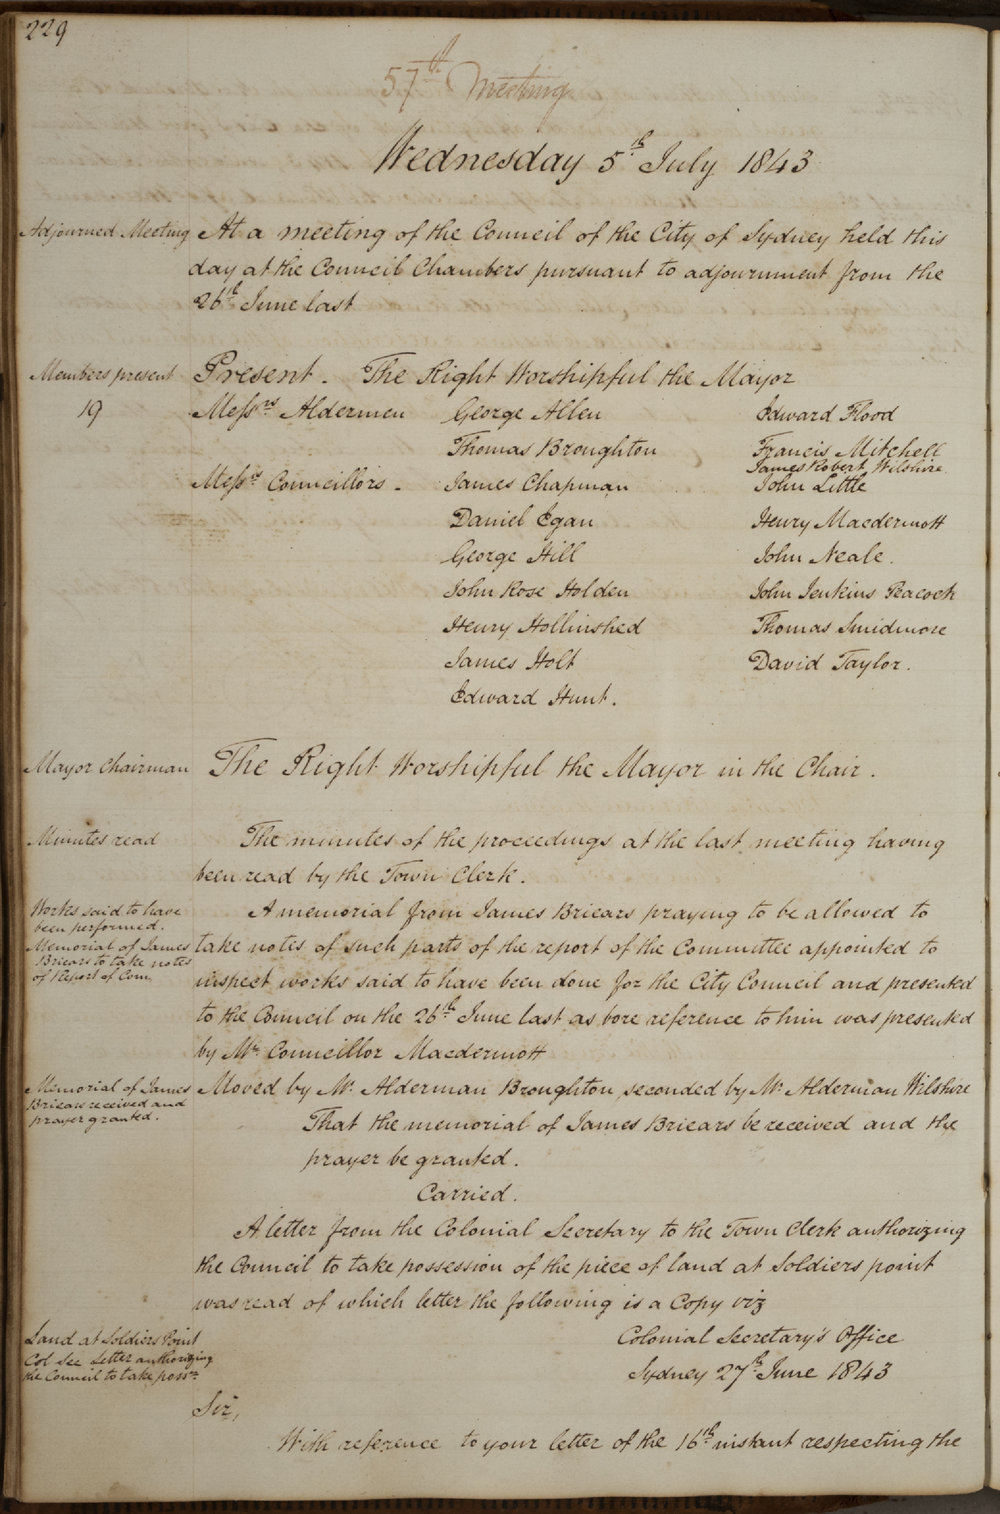 229
57th Meeting
Wednesday 5th July 1843
Adjourned Meeting
At a meeting of the Council of the City of Sydney held this
day at the Council Chambers pursuant to adjournment from the
26th June last
Members present
19
Present. The Right Worshipful the Mayor
Messrs Aldermen George Allen Edward Flood
Thomas Broughton Francis Mitchell
James Robert Wilshire
Messrs Councillors. James Chapman John Little
Daniel Egan Henry Macdermott
George Hill John Neale.
John Rose Holden John Jenkins Peacock
Henry Hollinshed Thomas Smidmore
James Holt David Taylor.
Edward Hunt.
Mayor Chairman
The Right Worshipful the Mayor in the Chair.
Minutes read
The minutes of the proceedings at the last meeting having
been read by the Town Clerk.
Works said to have
been performed.
Memorial of James
Briears to take notes
of Report of Com.
A memorial from James Briears praying to be allowed to
take notes of such parts of the report of the Committee appointed to
inspect works said to have been done for the City Council and presented
to the Council on the 26th June last as bore reference to him was presented
by Mr Councillor Macdermott
Memorial of James
Briears received and
prayer granted.
Moved by Mr Alderman Broughton, seconded by Mr Alderman Wilshire
That the memorial of James Briears be received and the
prayer be granted.
Carried.
A letter from the Colonial Secretary to the Town Clerk authorizing
the Council to take possession of the piece of land at Soldiers point
was read of which letter the following is a Copy viz
Land at Soldiers Point
Col Sec Letter authorizing
the Council to take possn
Colonial Secretary's Office
Sydney 27th June 1843
Sir,
With reference to your letter of the 16th instant respecting the